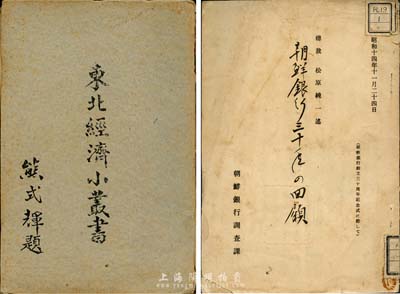 東北經濟小叢書
熊式輝題
昭和十四年十一月二十四日
(於朝鮮銀行創立三十周年記念式に際して)
總裁 松原純一述
朝鮮銀行三十年の回顧
朝鮮銀行調査課